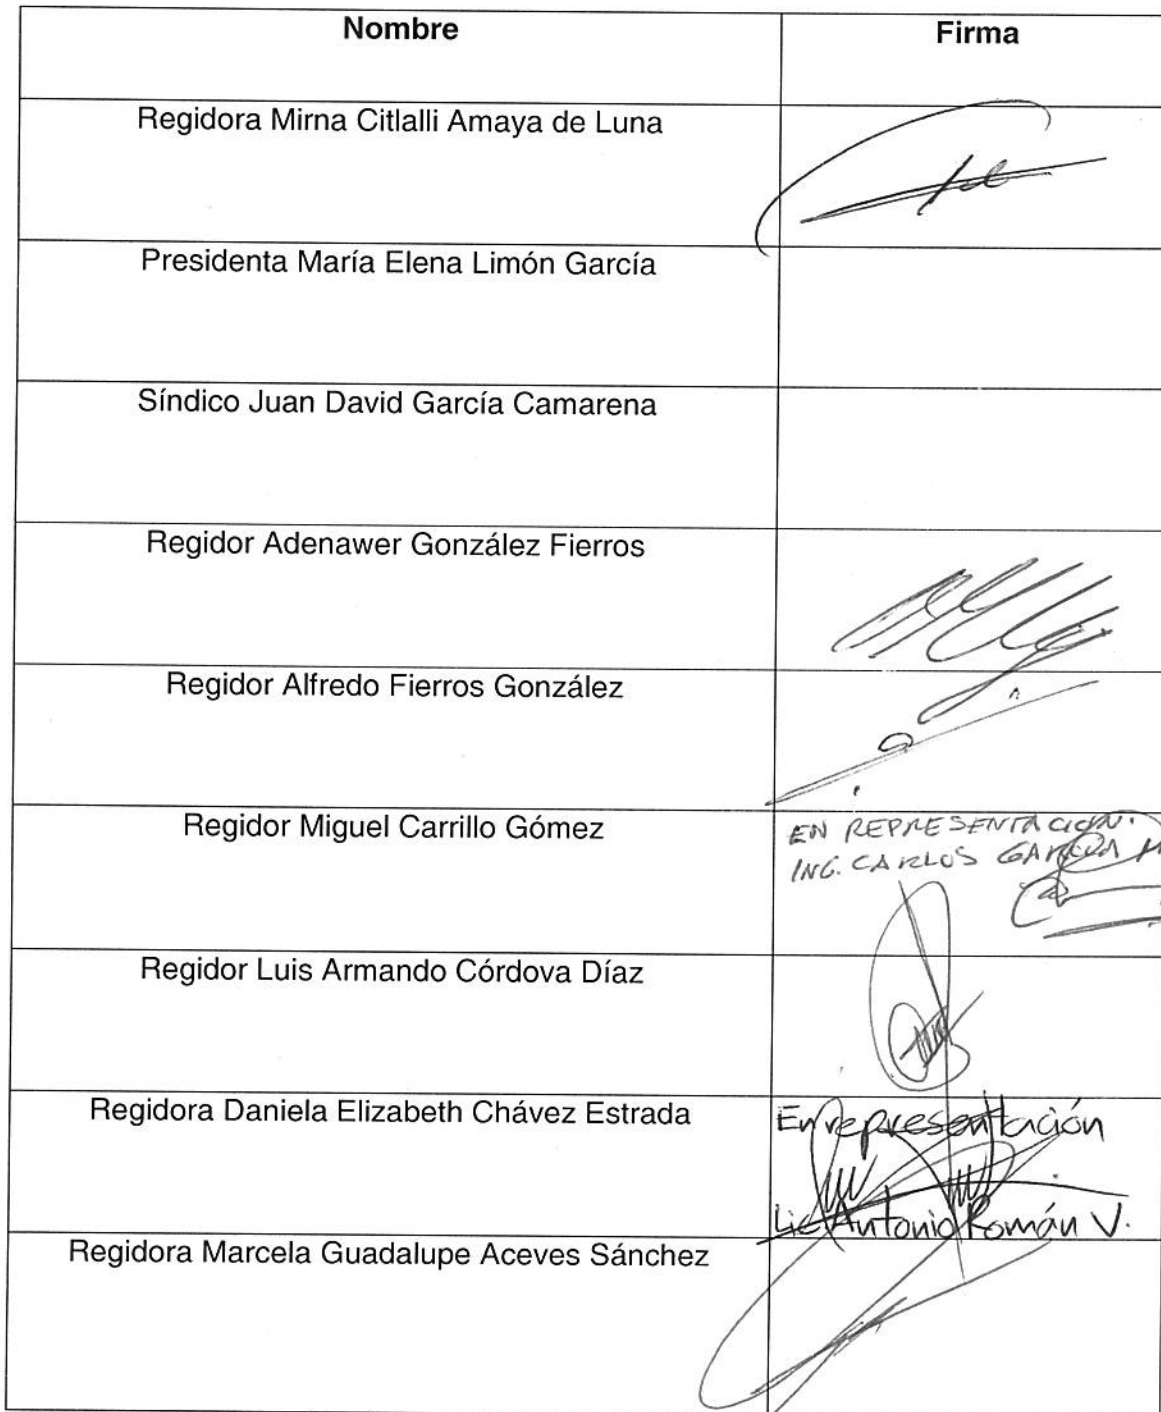 Nombre Firma
Regidora Mirna Citlalli Amaya de Luna
Presidenta María Elena Limón García
Síndico Juan David García Camarena
Regidor Adenawer González Fierros
Regidor Alfredo Fierros González
Regidor Miguel Carrillo Gómez
EN REPRESENTACION.
ING. CARLOS GARCIA
Regidor Luis Armando Córdova Díaz
Regidora Daniela Elizabeth Chávez Estrada
En representación
Lic Antonio Román V.
Regidora Marcela Guadalupe Aceves Sánchez